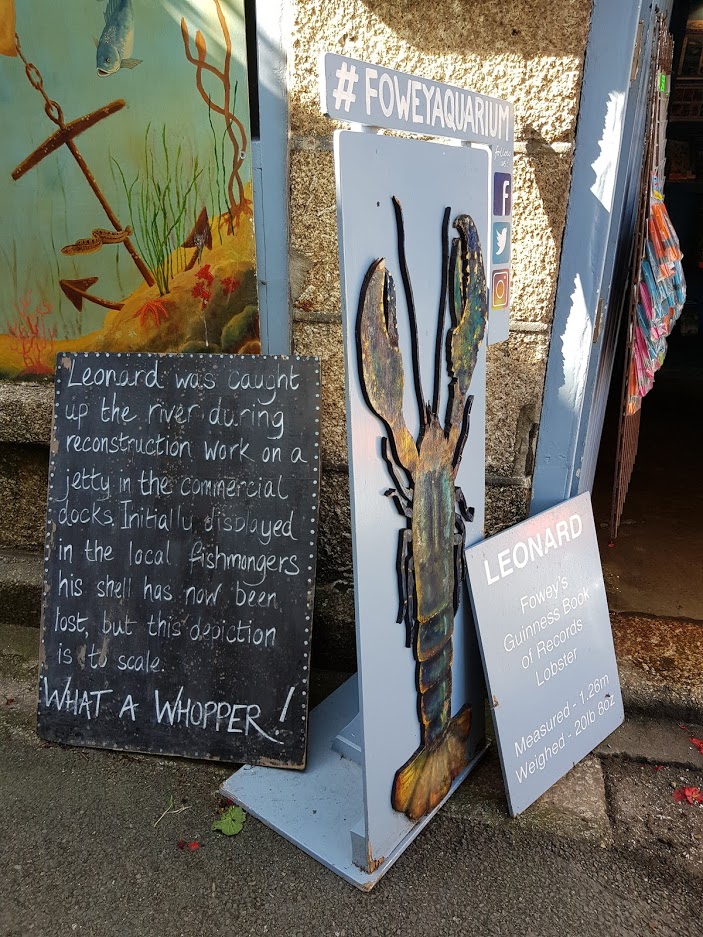 # FOWEYAQUARIUM
follow us
f
Leonard was caught
up the river during
reconstruction work on a
jetty in the commercial
docks. Initially displayed
in the local fishmongers
his shell has now been
lost, but this depiction
is to scale.
WHAT A WHOPPER!
LEONARD
Fowey's
Guinness Book
of Records
Lobster
Measured - 1.26m
Weighed - 20lb 8oz